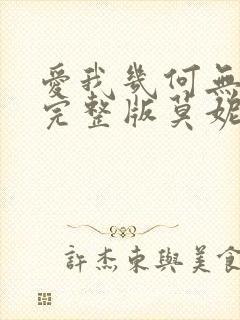 愛我幾何無
完整版莫妮
許杰東與美食